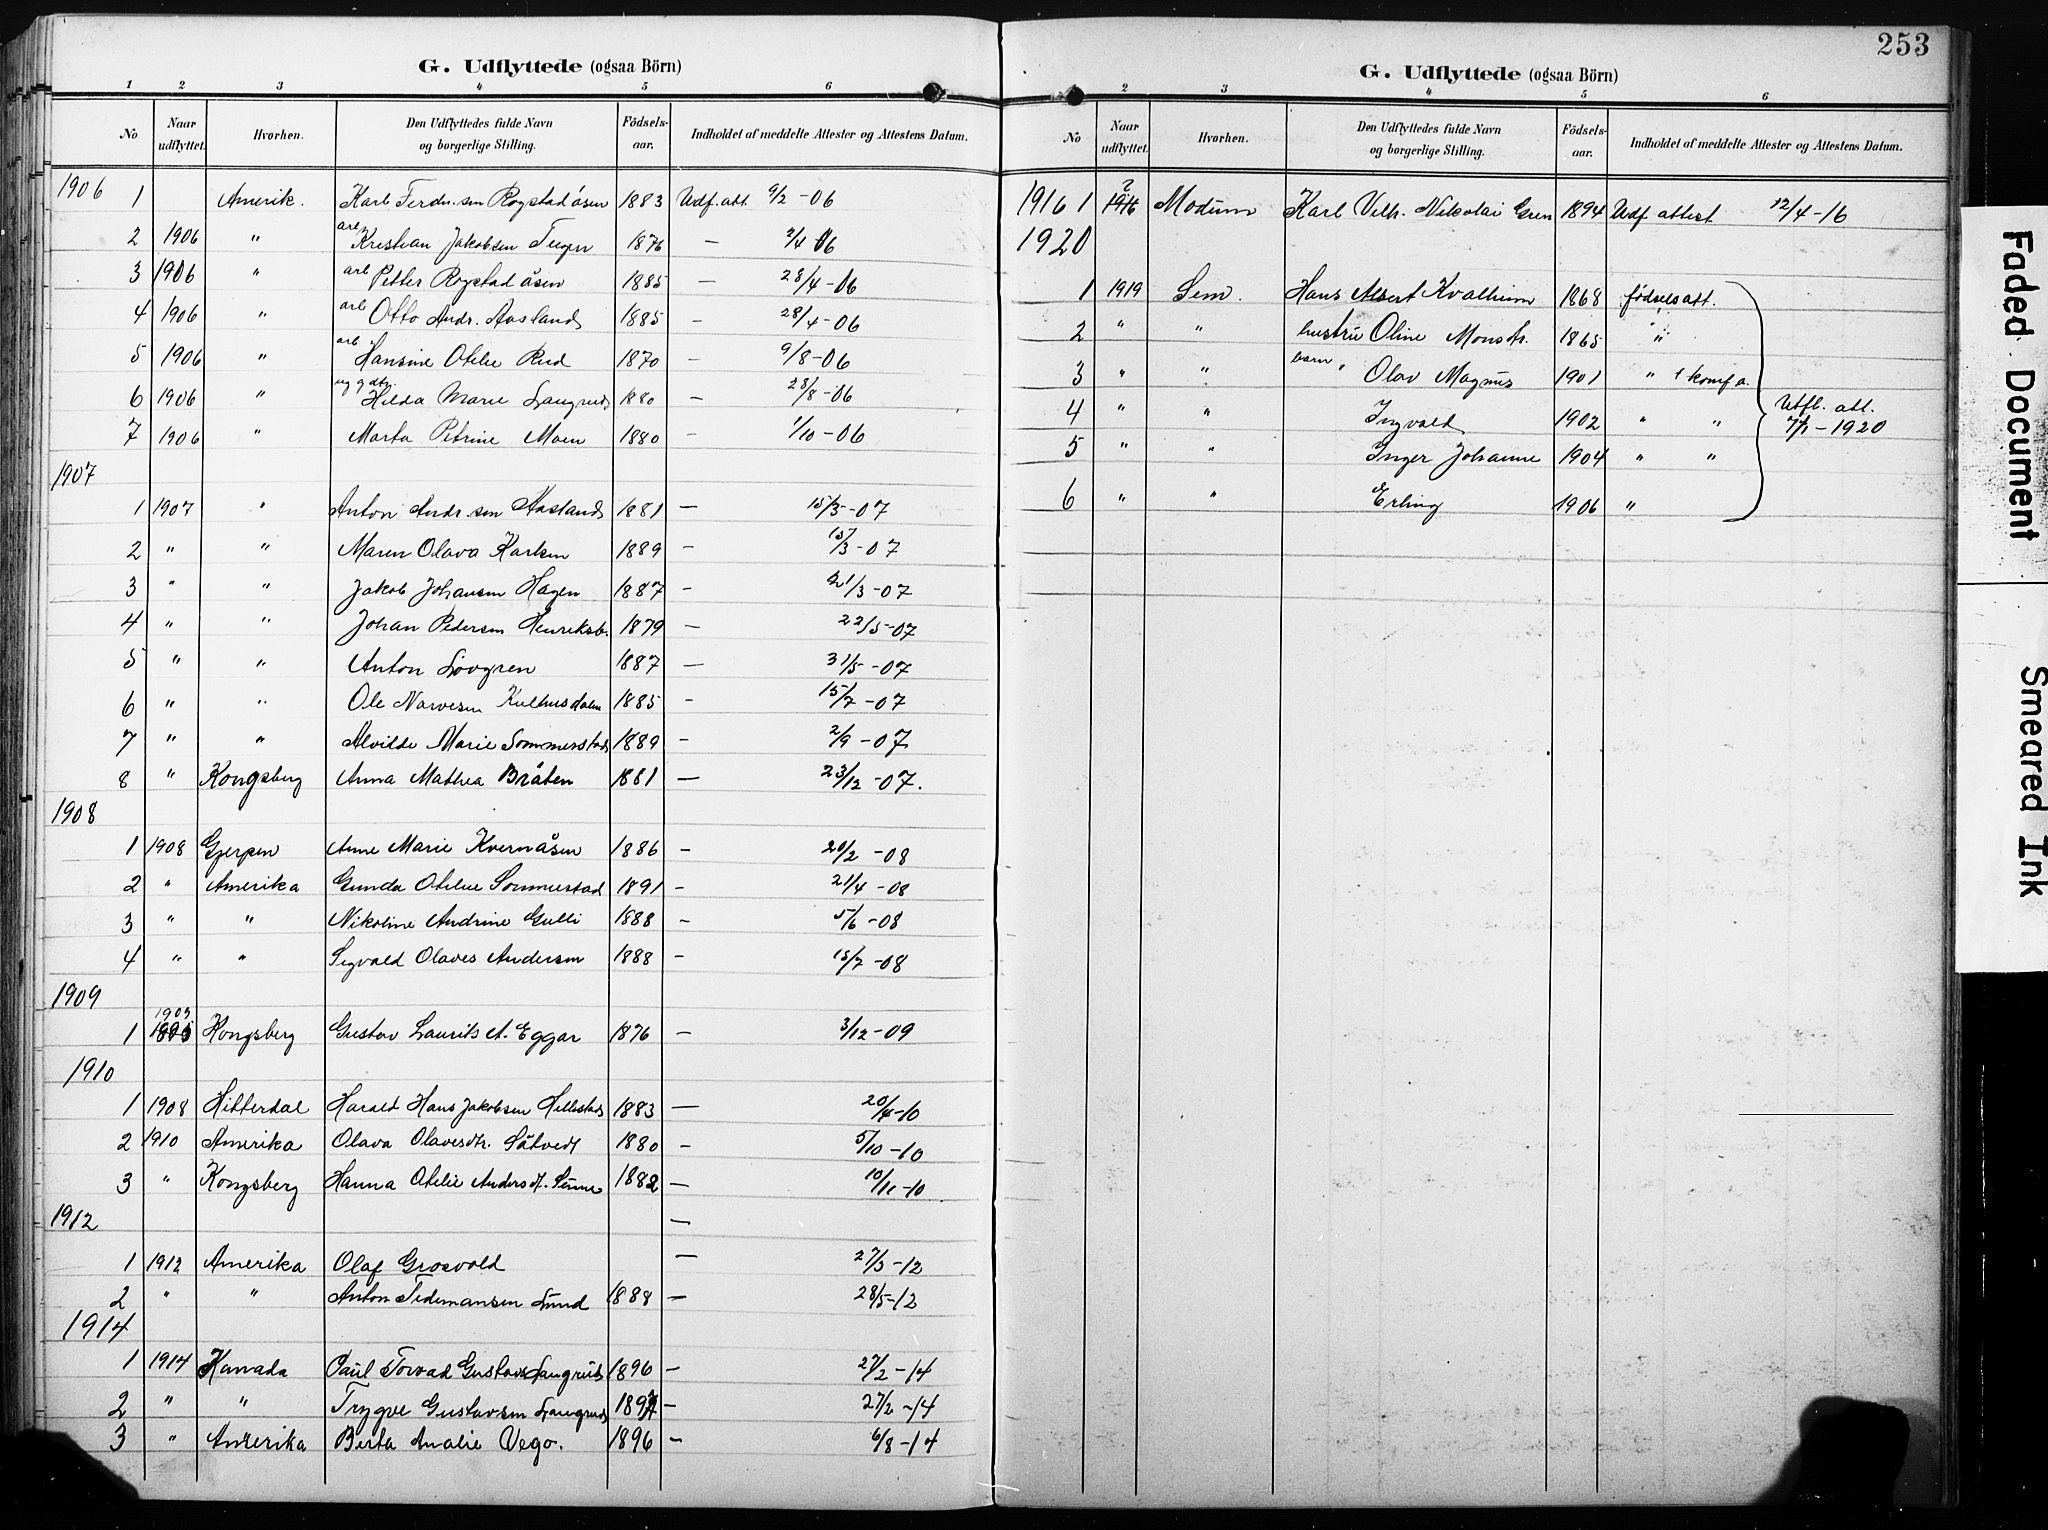 253
G. Udflyttede (ogsaa Börn)
1 2 3 4 5 6
No Naar udflyttet. Hvorhen. Den Udflyttedes fulde Navn og borgerlige Stilling. Födsels-aar. Indholdet af meddelte Attester og Attestens Datum.
1906 1 Amerik. Karl Ferdn.sen Rogstadåsen 1883 Udf.att. 9/2-06
2 1906 " arb Kristian Jakobsen 1876 — 2/4 06
3 1906 " arb Petter Rogstadåsen 1885 — 28/4-06
4 1906 " arb Otto Andr. Aasland 1885 — 28/4-06
5 1906 " arb Hansine Otelie Rud 1870 — 9/8-06
6 1906 " Hilda Marie Langrud 1880 — 28/8-06
7 1906 " Marta Petrine Moen 1880 — 1/10-06
1907
1 1907 " Anton Andr.sen Aasland 1881 — 15/3-07
2 " " Maren Olava Karlsen 1889 — 15/3-07
3 " " Jakob Johansen Hagen 1887 — 21/3-07
4 " " Johan Pedersen Henriksb. 1879 — 22/5-07
5 " " Anton Lövgren 1887 — 31/5-07
6 " " Ole Narvesen 1885 — 15/7-07
7 " " Alvilde Marie Sommerstad 1889 — 2/9-07
8 " Kongsberg Anna Mathea Bråten 1881 — 23/12-07.
1908
1 1908 Gjerpen Anne Marie Kvernåsen 1886 — 20/2-08
2 " Amerika Gunda Otelie Sommerstad 1891 — 21/4-08
3 " " Nikoline Andrine Gulli 1888 — 5/6-08
4 " " Sigvald Olaves Andersen 1888 — 15/7-08
1909
1 1909 Kongsberg Gustav Laurits A. Eggar 1876 — 3/12-09
1910
1 1908 Hitterdal Harald Hans Jakobsen Hellestad 1883 — 20/4-10
2 1910 Amerika Olava Olavesdtr. Såtvedt 1880 — 5/10-10
3 " Kongsberg Hanna Otelie Andersdt. 1882 — 10/11-10
1912 —
1 1912 Amerika Olaf Grosvold — 27/3-12
2 " " Anton Tidemansen Lund 1888 — 28/5-12
1914
1 1914 Kanada Paul Torvad Gustavs. Langrud 1896 — 27/2-14
2 " " Trygve Gustavsen Langrud 1897 — 27/2-14
3 " Amerika Berta Analie Vego. 1896 — 6/8-14
G. Udflyttede (ogsaa Börn)
2 3 4 5 6
No Naar udflyttet. Hvorhen. Den Udflyttedes fulde Navn og borgerlige Stilling. Födsels-aar. Indholdet af meddelte Attester og Attestens Datum.
1916 1 ? 1916 Modum Karl Vilh. Nikolai Gren 1894 Udf attest 12/4-16
1920
1 1919 Sem. Hans Albert Kvalheim 1868 fødselsatt.
2 " " hustru Oline Monsdtr. 1865 "
3 " " barn " Olav Magnus 1901 " & konf a.
4 " " Ingvald 1902 " "
Utfl. att. 7/1-1920
5 " " Inger Johanne 1904 " "
6 " " Erling 1906 "
Faded Document
Smeared Ink